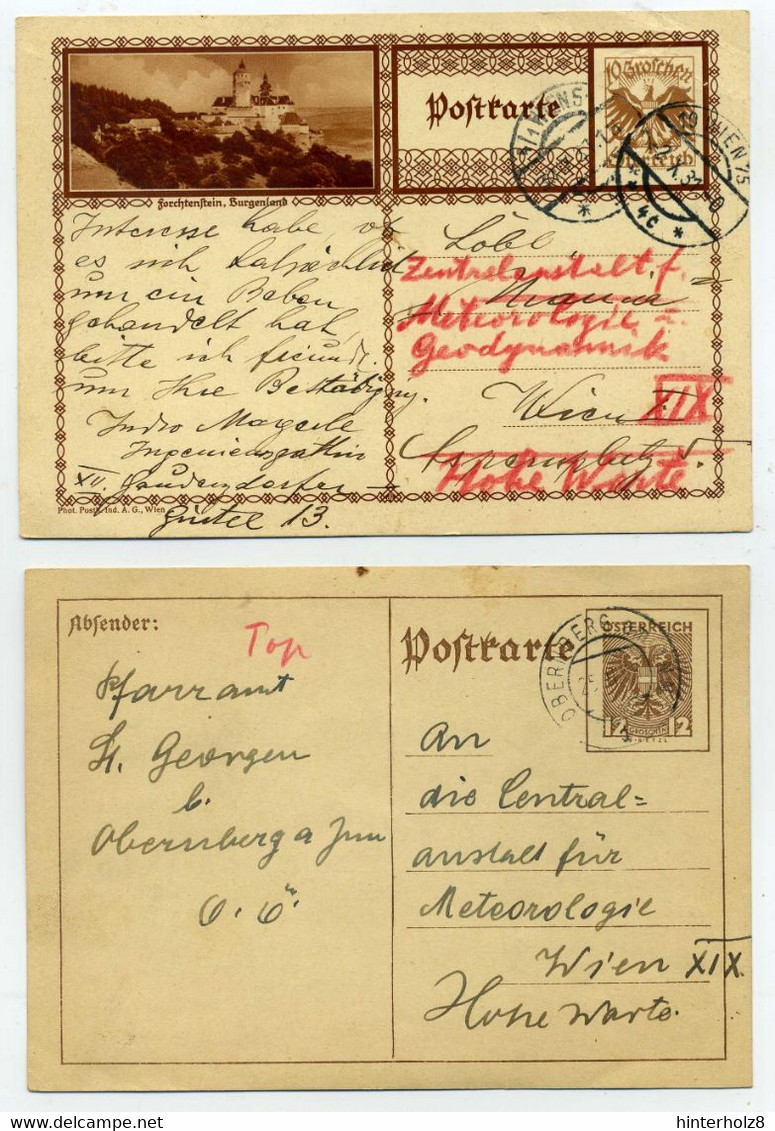 Postkarte
10 Groschen
Österreich
WIEN 75
Forchtenstein, Burgenland
Interesse habe, ob
es sich tatsächlich
um ein Beben
gehandelt hat,
bitte ich freundl.
um Ihre Bestätigung.
Ingenieursgattin
XII. Gaudenzdorfer-
Gürtel 13.
Phot. Postk. Ind. A. G., Wien
Löbl.
Zentralanstalt f.
Meteorologie u.
Geodynamik
Wien XIX
Aspernplatz 5
Hohe Warte
Absender:
Top
Pfarramt
St. Georgen
b.
Obernberg a Inn
O. Ö.
Postkarte
ÖSTERREICH
12 GROSCHEN 12
OBERNBERG
An
die Central=
anstalt für
Meteorologie
Wien XIX.
Hohe Warte.
hinterholz8